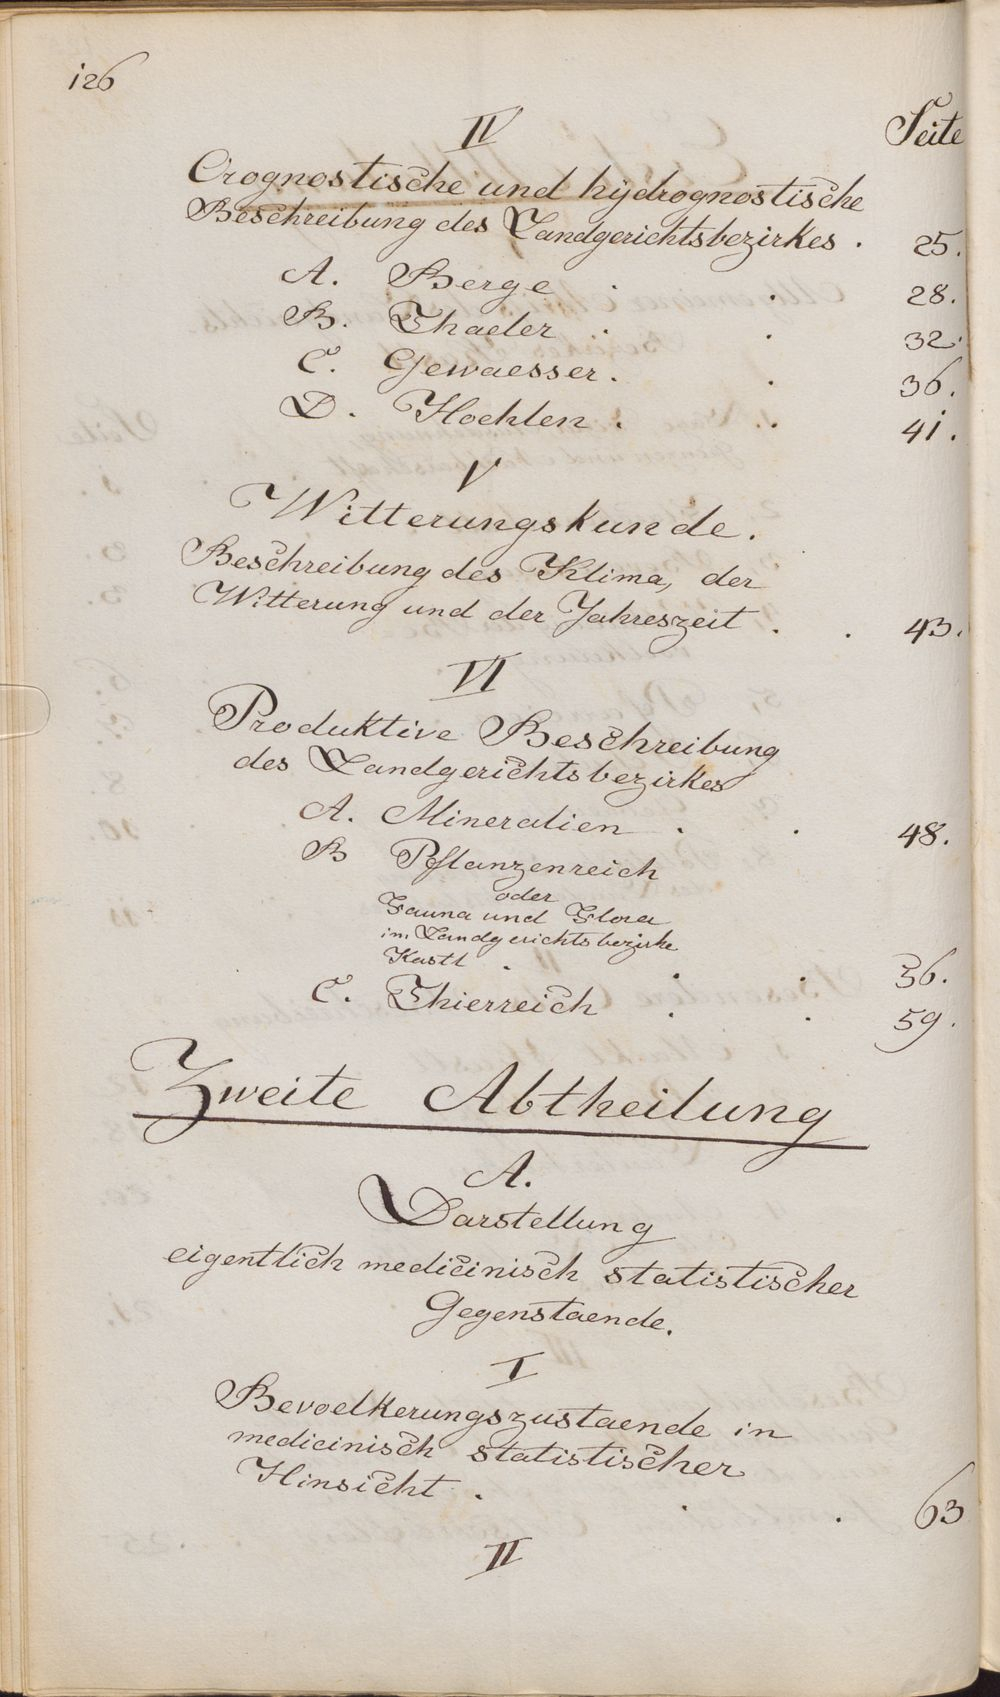 126
Seite
IV
Orognostische und hydrognostische
Beschreibung des Landgerichtsbezirkes . 25.
A. Berge . . 28.
B. Thaeler . . 32.
C. Gewaesser. . 36.
D. Hoehlen . . 41.
V
Witterungskunde.
Beschreibung des Klima, der
Witterung und der Jahreszeit . . 43.
VI
Produktive Beschreibung
des Landgerichtsbezirkes
A. Mineralien . . 48.
B Pflanzenreich
oder
Fauna und Flora
im Landgerichtsbezirke
Kastl . . . 56.
C. Thierreich . . 59.
Zweite Abtheilung
A.
Darstellung
eigentlich medicinisch statistischer
Gegenstaende.
I
Bevoelkerungszustaende in
medicinisch statistischer
Hinsicht . . . 63
II